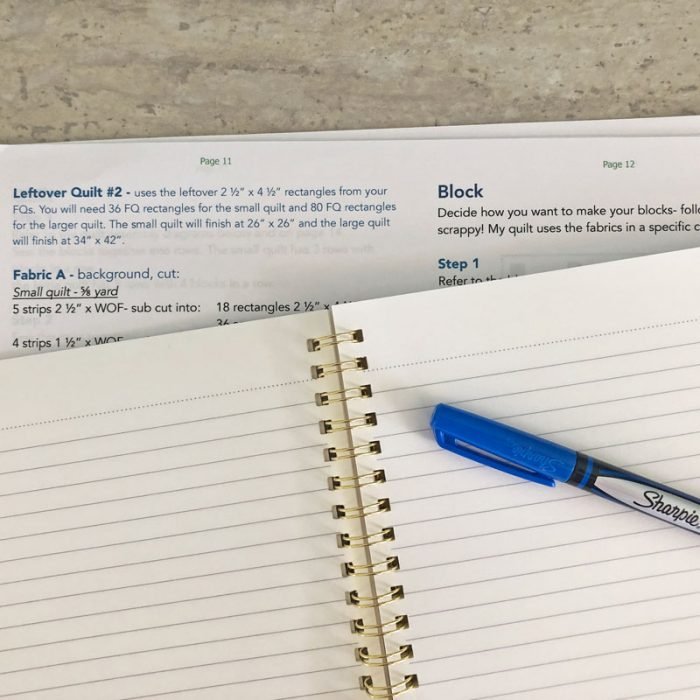 Page 11
Leftover Quilt #2 - uses the leftover 2 ½" x 4 ½" rectangles from your
FQs. You will need 36 FQ rectangles for the small quilt and 80 FQ rectangles
for the larger quilt. The small quilt will finish at 26" x 26" and the large quilt
will finish at 34" x 42".
Fabric A - background, cut:
Small quilt - ⅝ yard
5 strips 2 ½" x WOF- sub cut into: 18 rectangles 2 ½" x
4 strips 1 ½" x WOF
Page 12
Block
Decide how you want to make your blocks-
scrappy! My quilt uses the fabrics in a specific
Step 1
Refer to
Sharpie
Sharpie